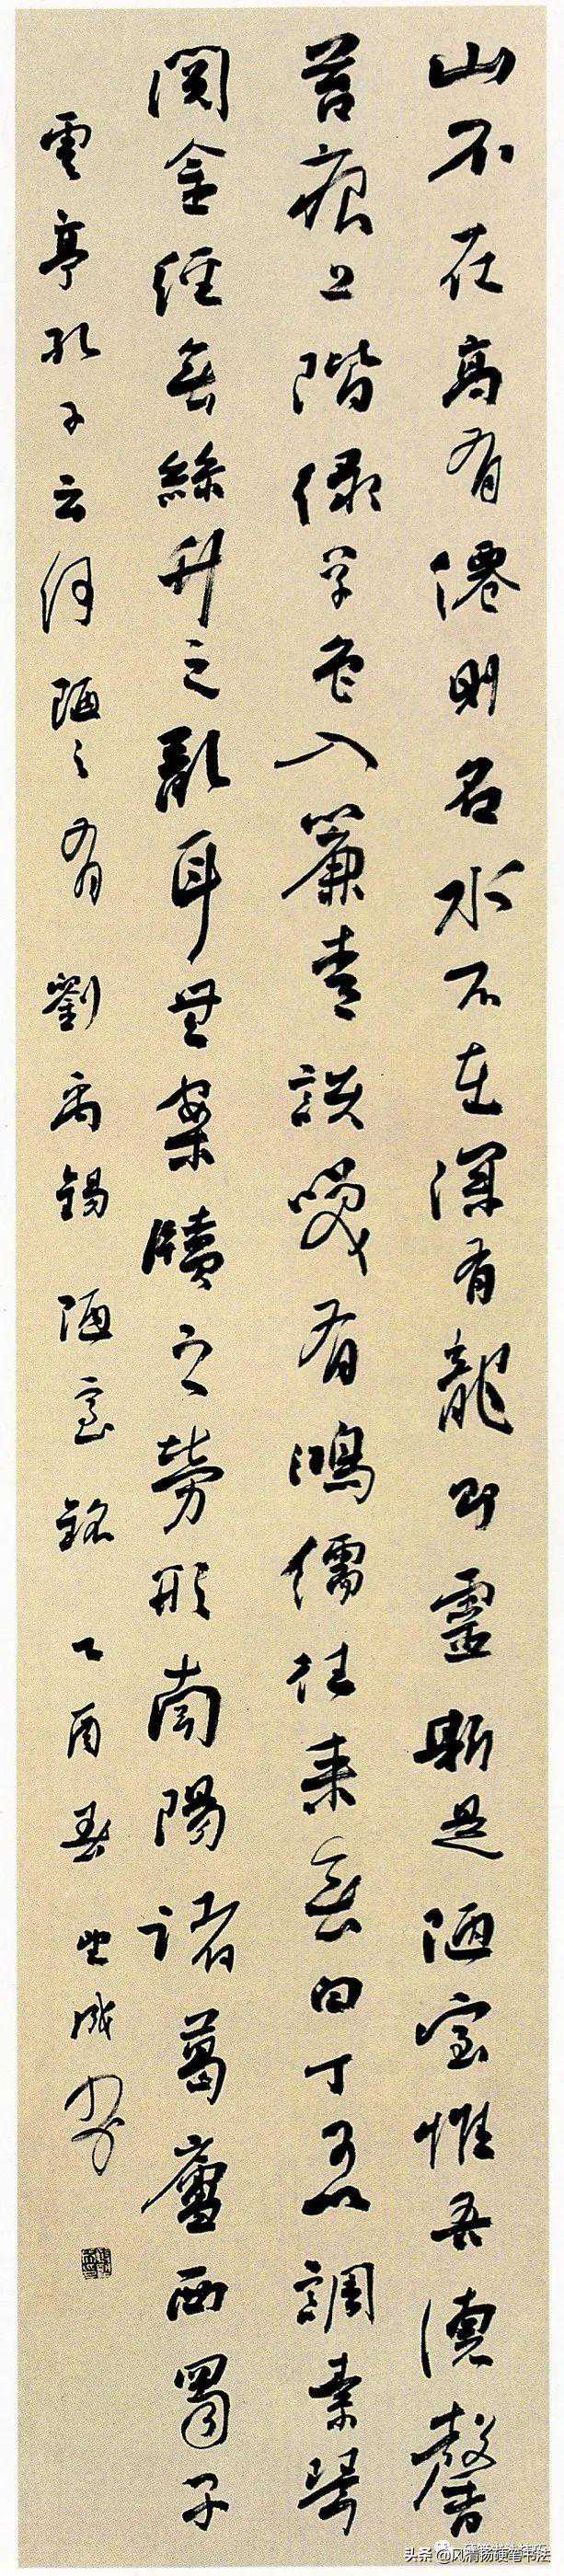 山不在高有僊則名水不在深有龍則靈斯是陋室惟吾德馨
苔痕上階綠草色入簾青談笑有鴻儒往來無白丁可以調素琴
閱金經無絲竹之亂耳無案牘之勞形南陽諸葛廬西蜀子
雲亭孔子云何陋之有 劉禹錫陋室銘 乙酉春
头条 @风清扬硬笔书法